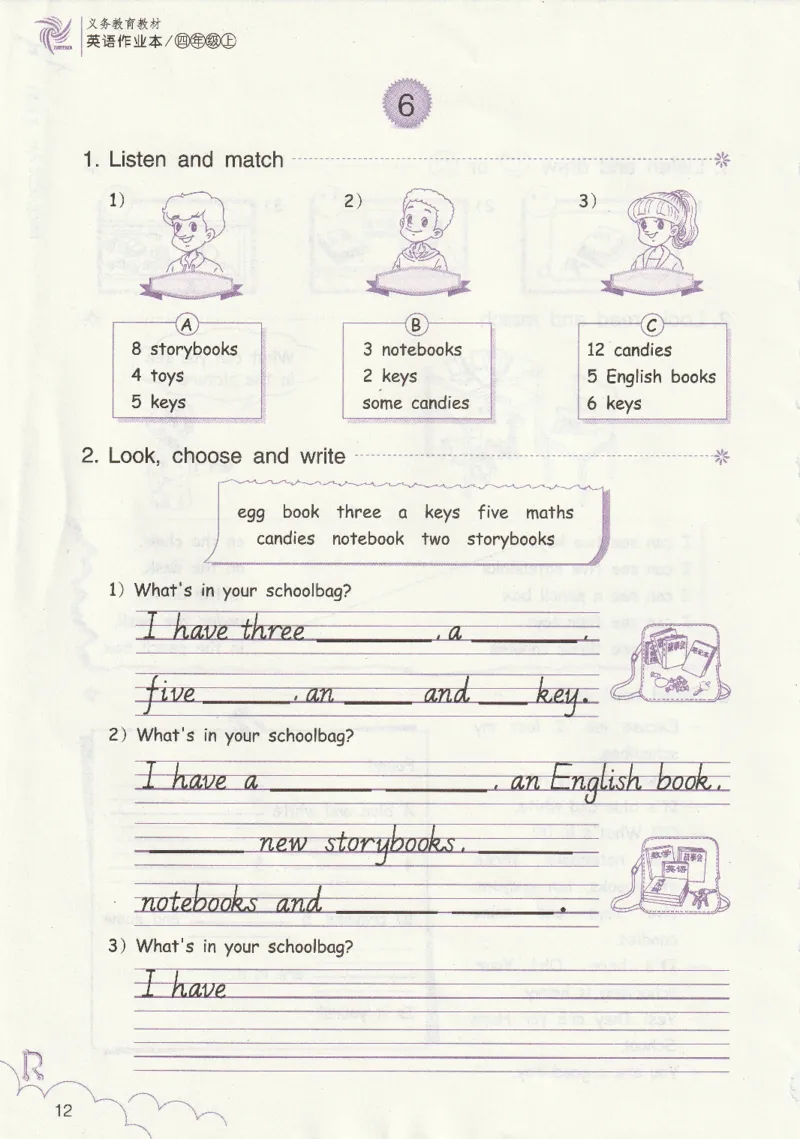 义务教育教材
英语作业本/四年级上
6
1. Listen and match
1) 2) 3)
A
8 storybooks
4 toys
5 keys
B
3 notebooks
2 keys
some candies
C
12 candies
5 English books
6 keys
2. Look, choose and write
egg book three a keys five maths
candies notebook two storybooks
1) What's in your schoolbag?
I have three ________, a ________,
five ________, an ________ and ____ key.
2) What's in your schoolbag?
I have a ________ ________, an English book,
________ new storybooks, ________
notebooks and ________ ________.
3) What's in your schoolbag?
I have
数学
故事会
英语
R
12